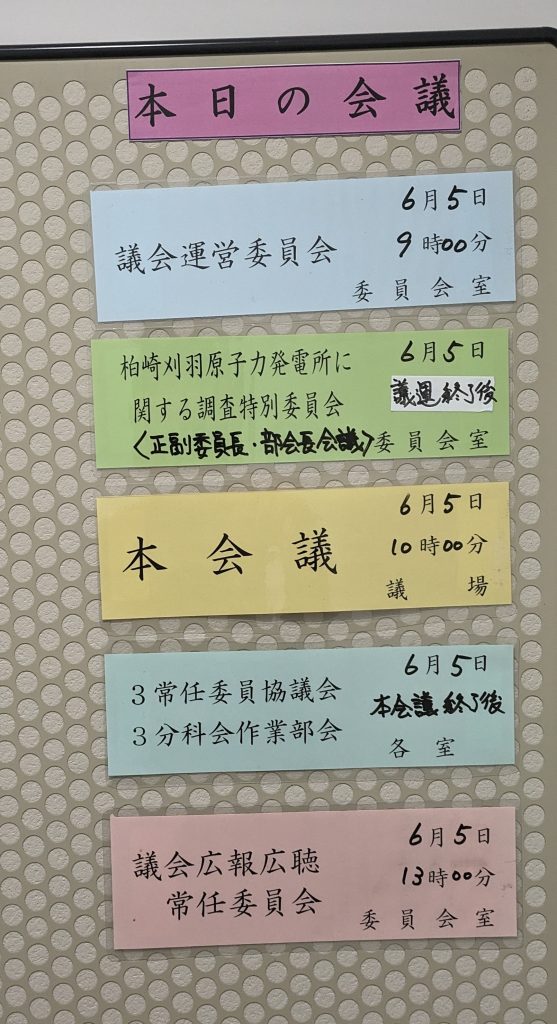 本日の会議
6月5日
議会運営委員会 9時00分
委員会室
柏崎刈羽原子力発電所に 6月5日
関する調査特別委員会 議運終了後
〈正副委員長・部会長会議〉委員会室
6月5日
本会議 10時00分
議場
6月5日
3常任委員協議会 本会議終了後
3分科会作業部会 各室
6月5日
議会広報広聴 13時00分
常任委員会 委員会室